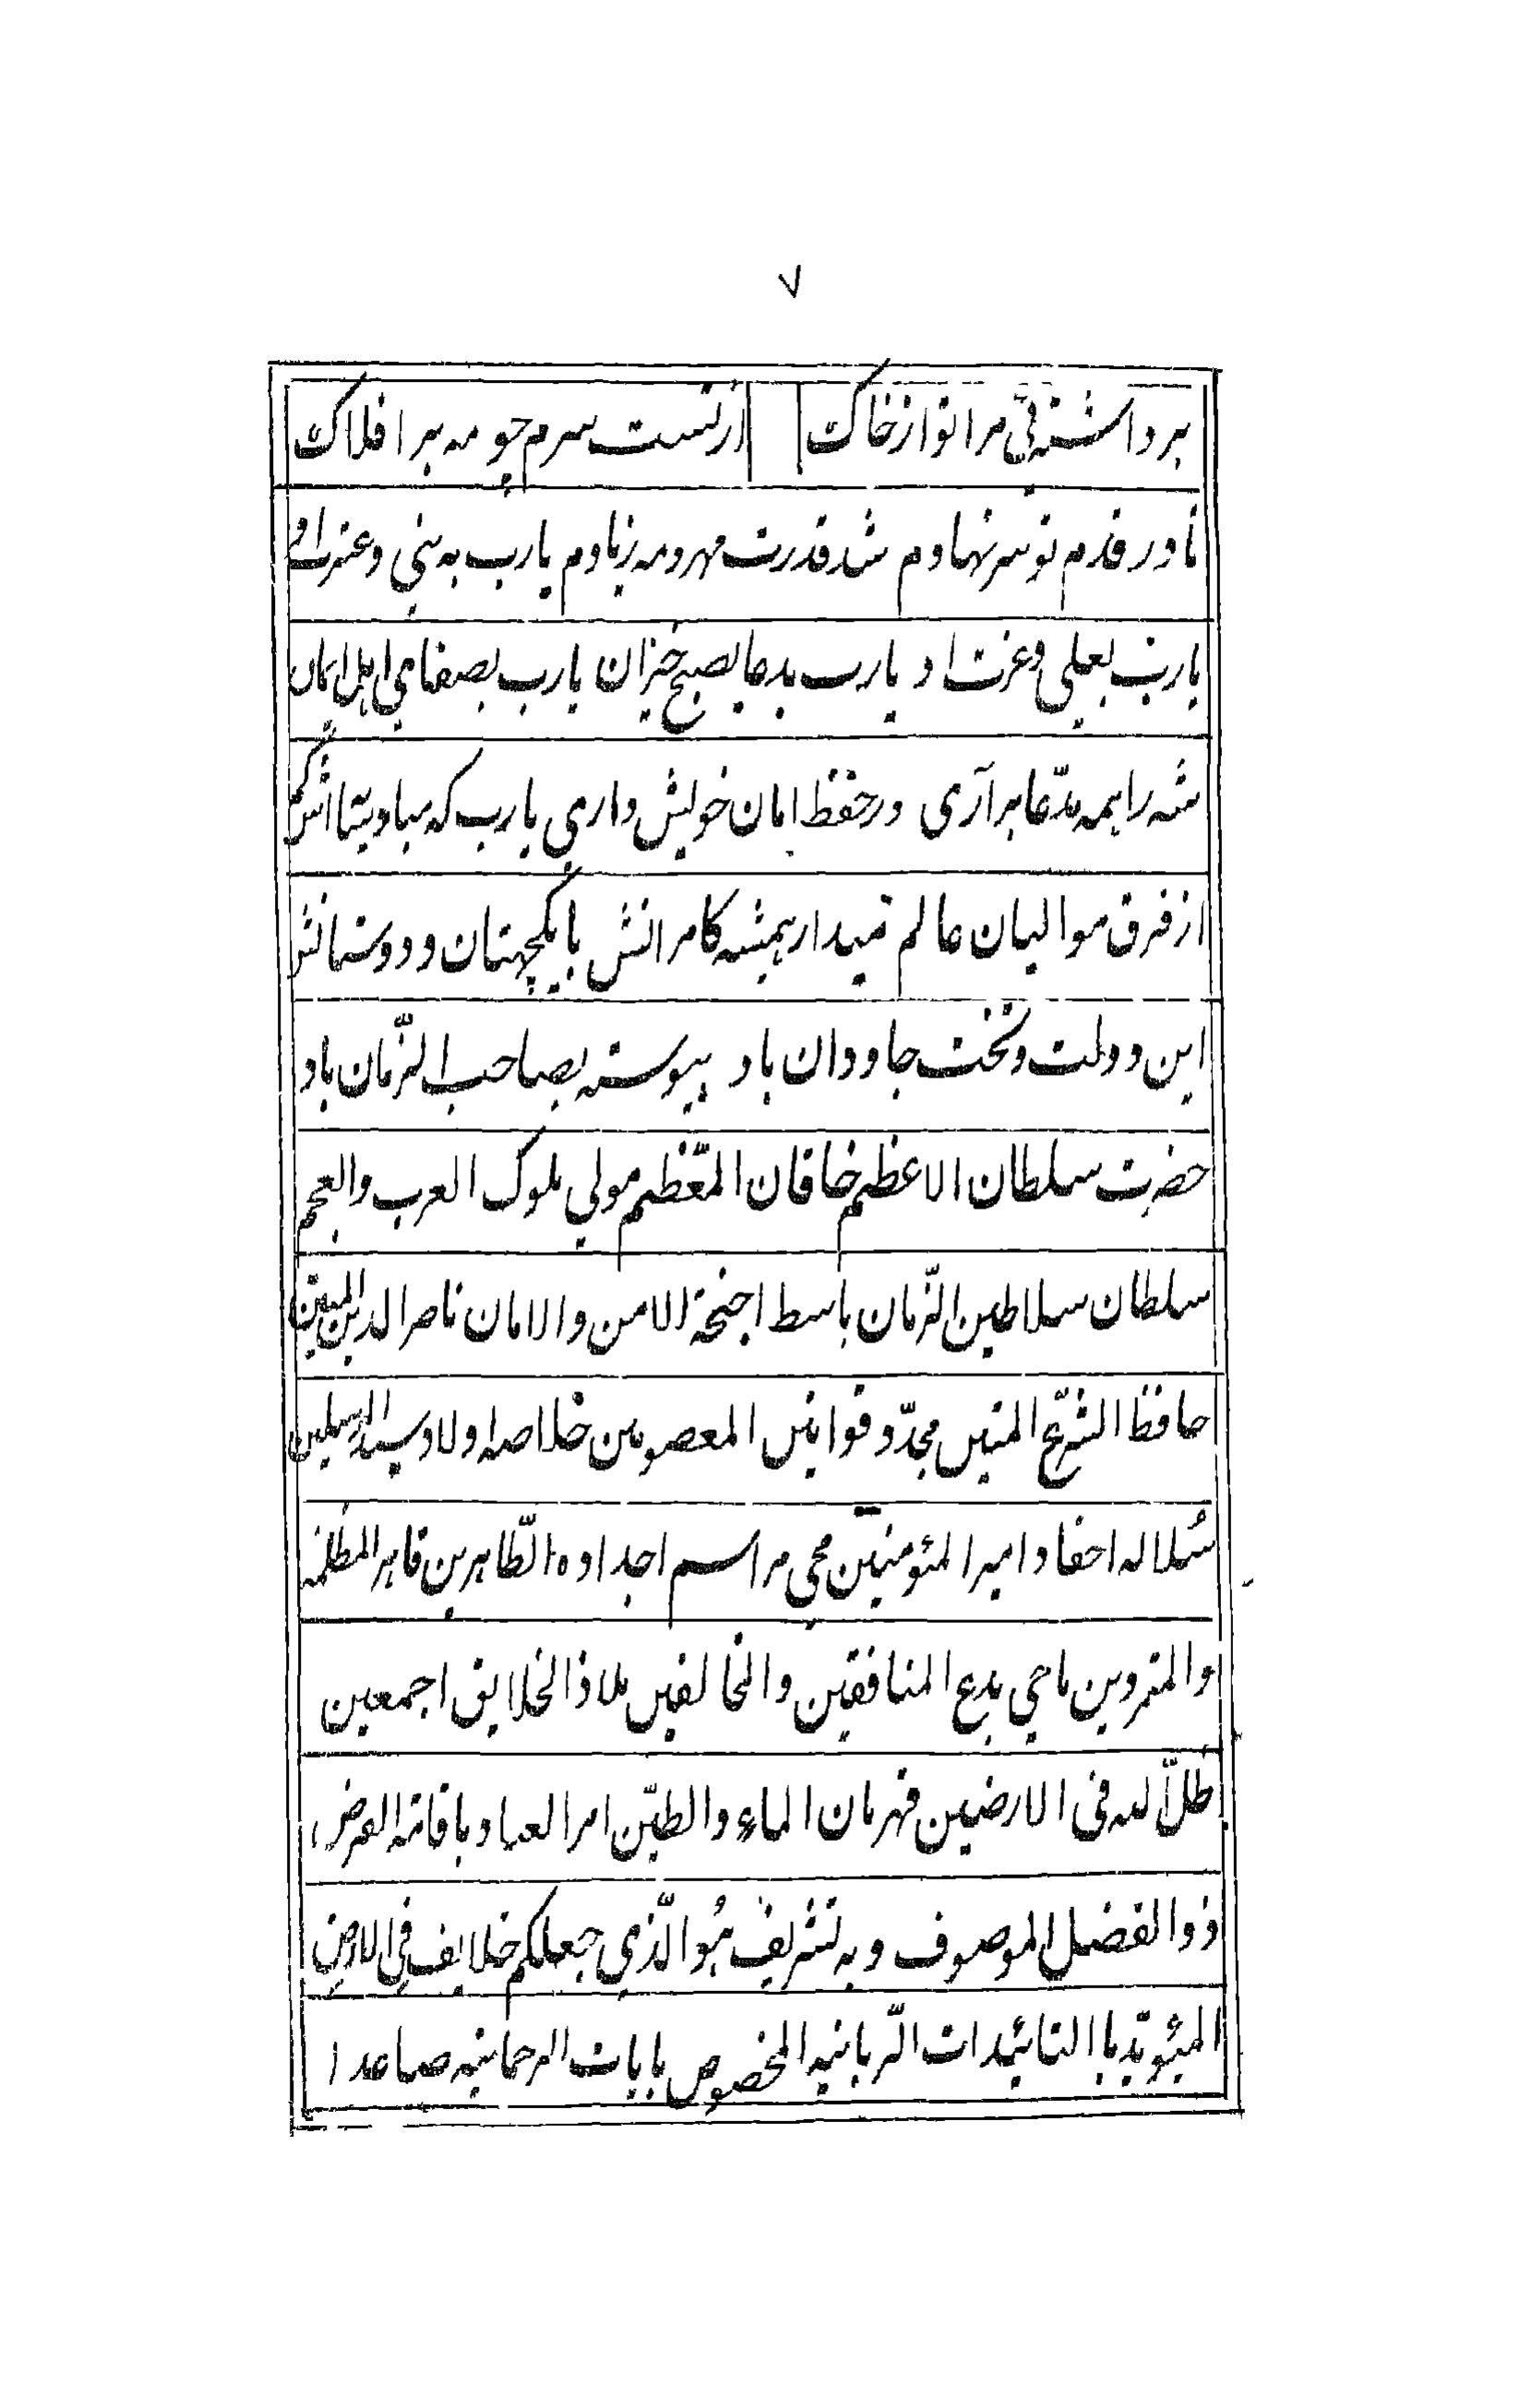 ۷
برداشته‌ئی مرا تو از خاک از تست سرم چو مه بر افلاک
تا در قدم تو سر نهادم شد قدرت مهر و مه زیادم یارب به نبی و عترت او
یارب بعلی و عزت او یارب بدعای صبح خیزان یارب بصفای اهل ایمان
شه را همه مدّعا برآری در حفظ امان خویش داری یارب که مباد بیتا اش کم
از فرق موالیان عالم میدار همیشه کامرانش با یکجهتان و دوستانش
این دولت و تخت جاودان باد پیوسته بصاحب الزّمان باد
حضرت سلطان الاعظم خاقان المعّظم مولی ملوک العرب والعجم
سلطان سلاطین الزّمان باسط اجنحة الامن والامان ناصر الدین المبین
حافظ الشّرع المتین مجدّد قوانین المعصومین خلاصه اولاد سید المرسلین
سُلاله احفاد امیر المئومنین محی مراسم اجداده الطّاهرین قاهر المظلمه
والمتمردین ماحی بدع المنافقین والمخالفین ملاذ الخلایق اجمعین
ظلّ الله فی الارضین قهرمان الماء والطیّن امر العباد باقامة الفرض
ذو الفضل الموصوف و به تشریف هُو الّذی جعلکم خلایف فی الارض
المئویّد باالتائیدات الّربانیه المخصوص بایات الرحمانیه صاعد ا